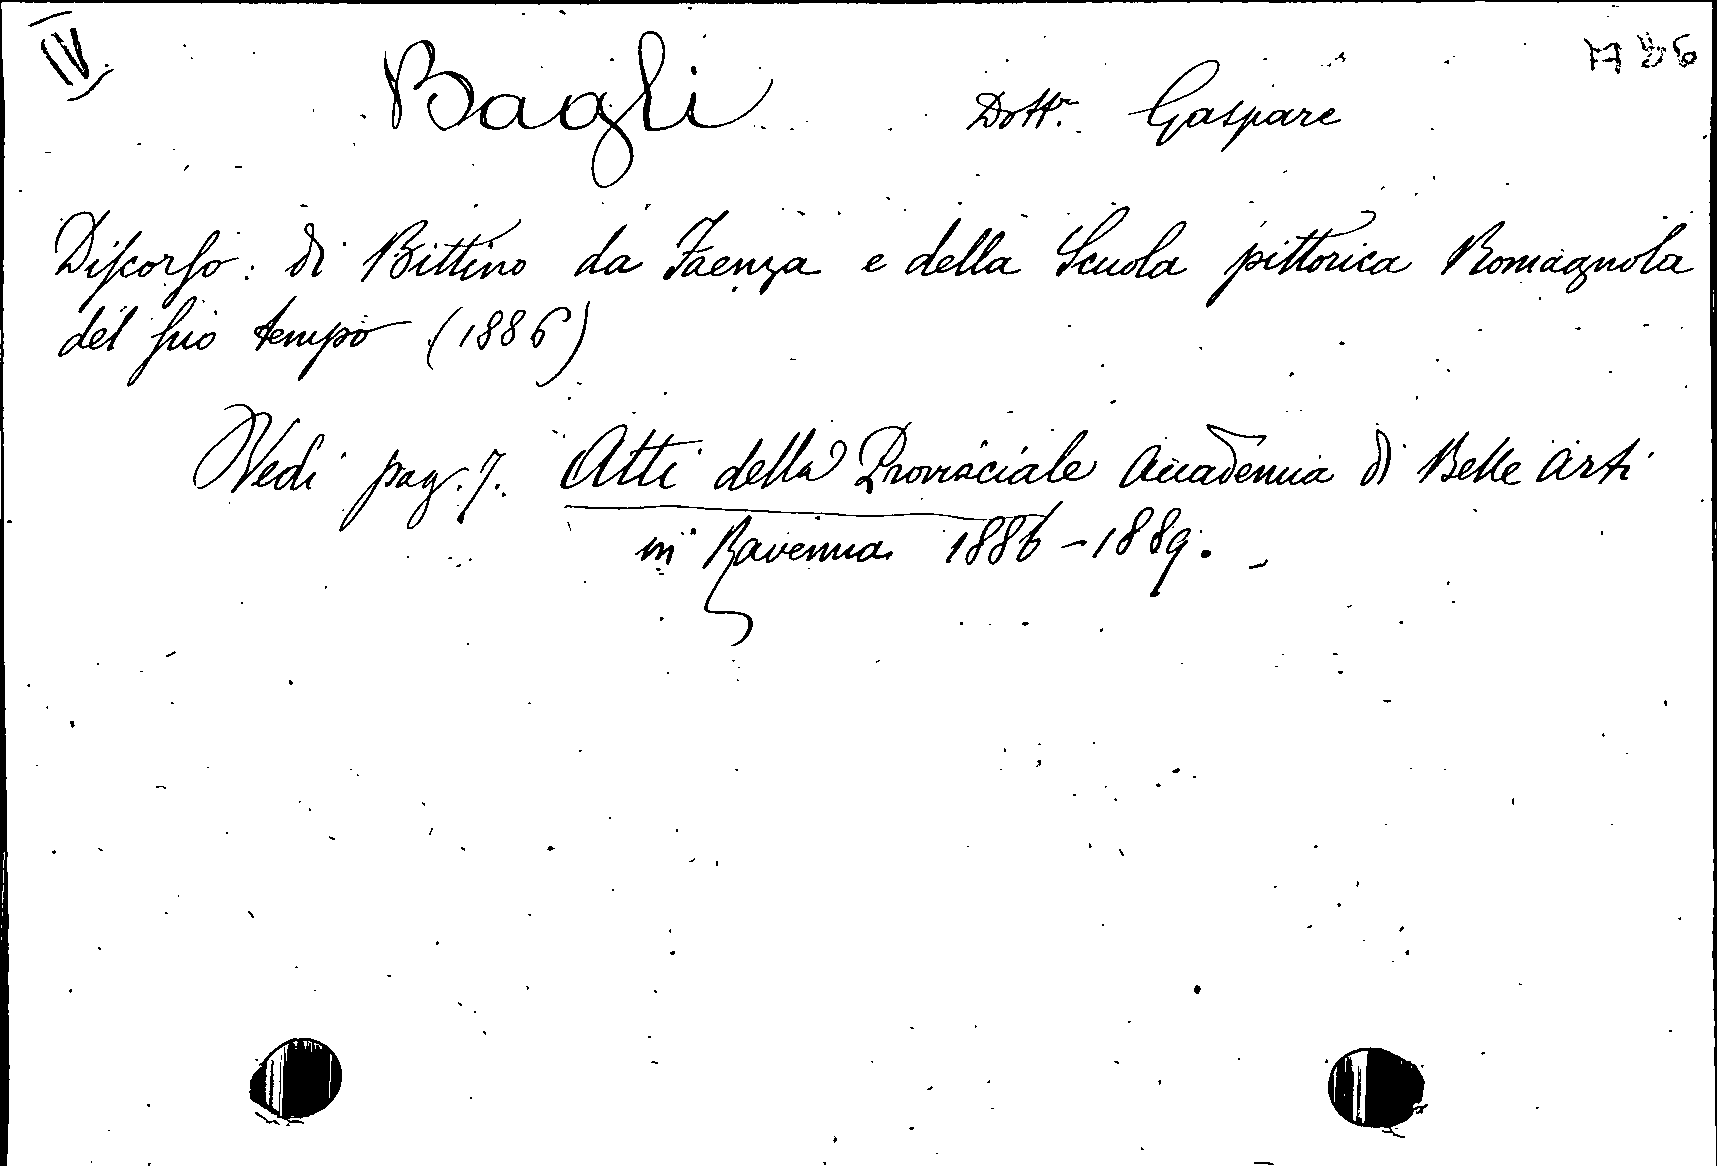 IV.
Bagli Dott.r Gaspare
Discorso: di Bittino da Faenza e della Scuola pittorica Romagnola
del suo tempo (1886)
Vedi pag. 7. Atti della Provinciale Accademia di Belle Arti
in Ravenna 1886-1889.